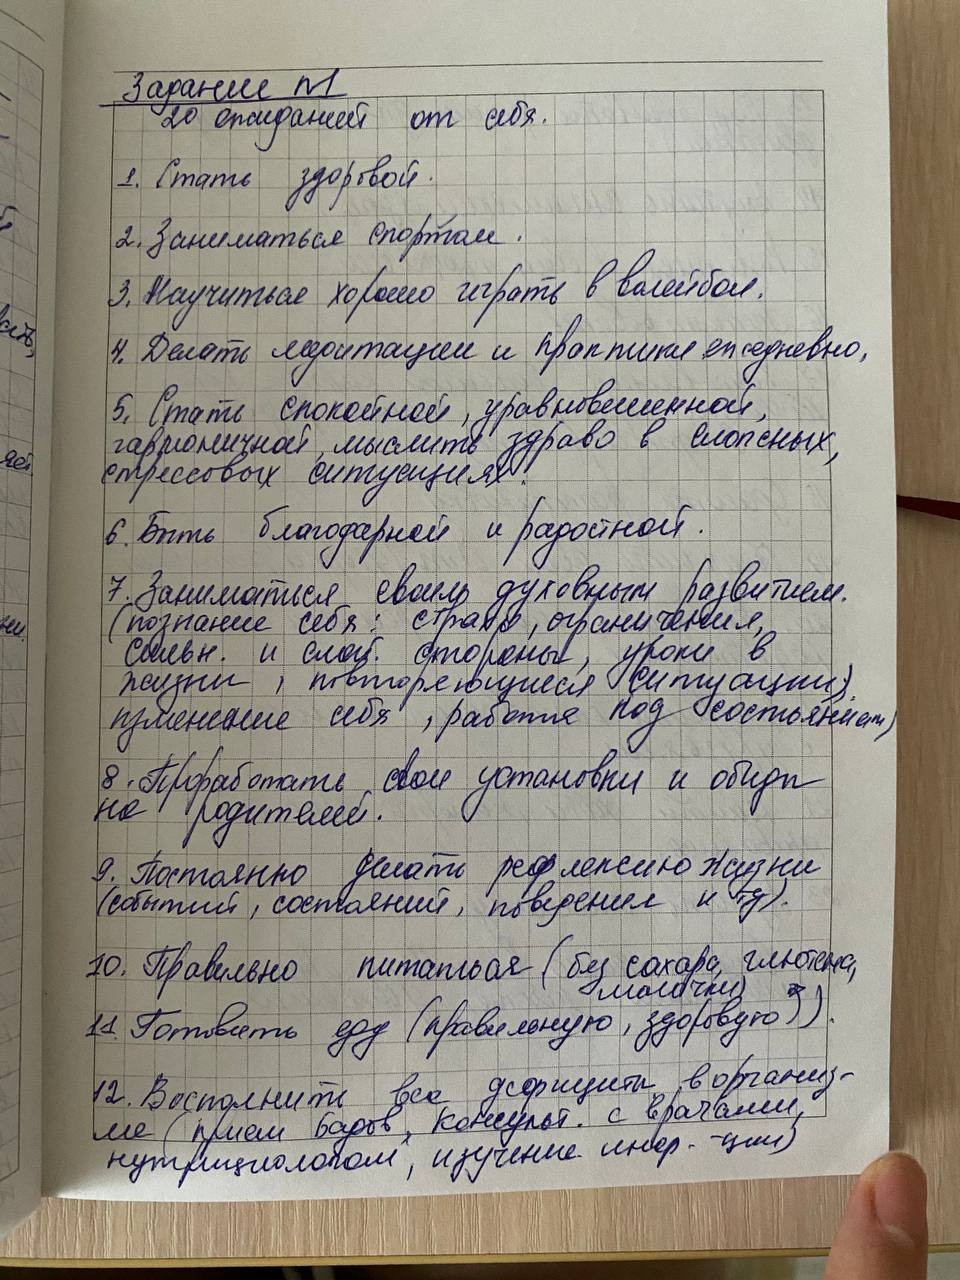 Задание №1
20 ожиданий от себя.
1. Стать здоровой.
2. Заниматься спортом.
3. Научиться хорошо играть в волейбол.
4. Делать медитации и практики ежедневно.
5. Стать спокойной, уравновешенной,
гармоничной, мыслить здраво в сложных,
стрессовых ситуациях.
6. Быть благодарной и радостной.
7. Заниматься своим духовным развитием.
(познание себя: страхи, ограничения,
сильн. и слаб. стороны, уроки в
жизни, повторяющиеся ситуации).
изменение себя, работа над состоянием)
8. Проработать свои установки и обиды
на родителей.
9. Постоянно делать рефлексию жизни
(событий, состояний, поведения и тд).
10. Правильно питаться (без сахара, глютена,
молочки)
11. Готовить еду (правильную, здоровую)).
12. Восполнить все дефициты в организ-
ме (прием бадов, консульт. с врачами,
нутрициологом, изучение инфор-ции)